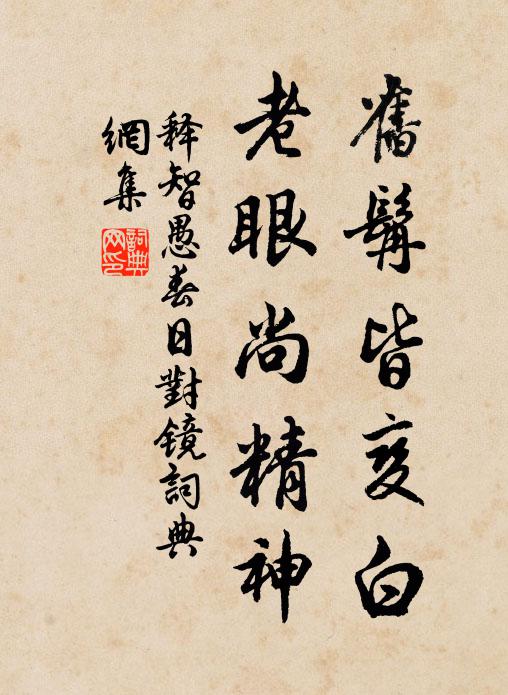 舊鬢皆变白
老眼尚精神
释智愚春日對镜詞典
網集
詞典
网印